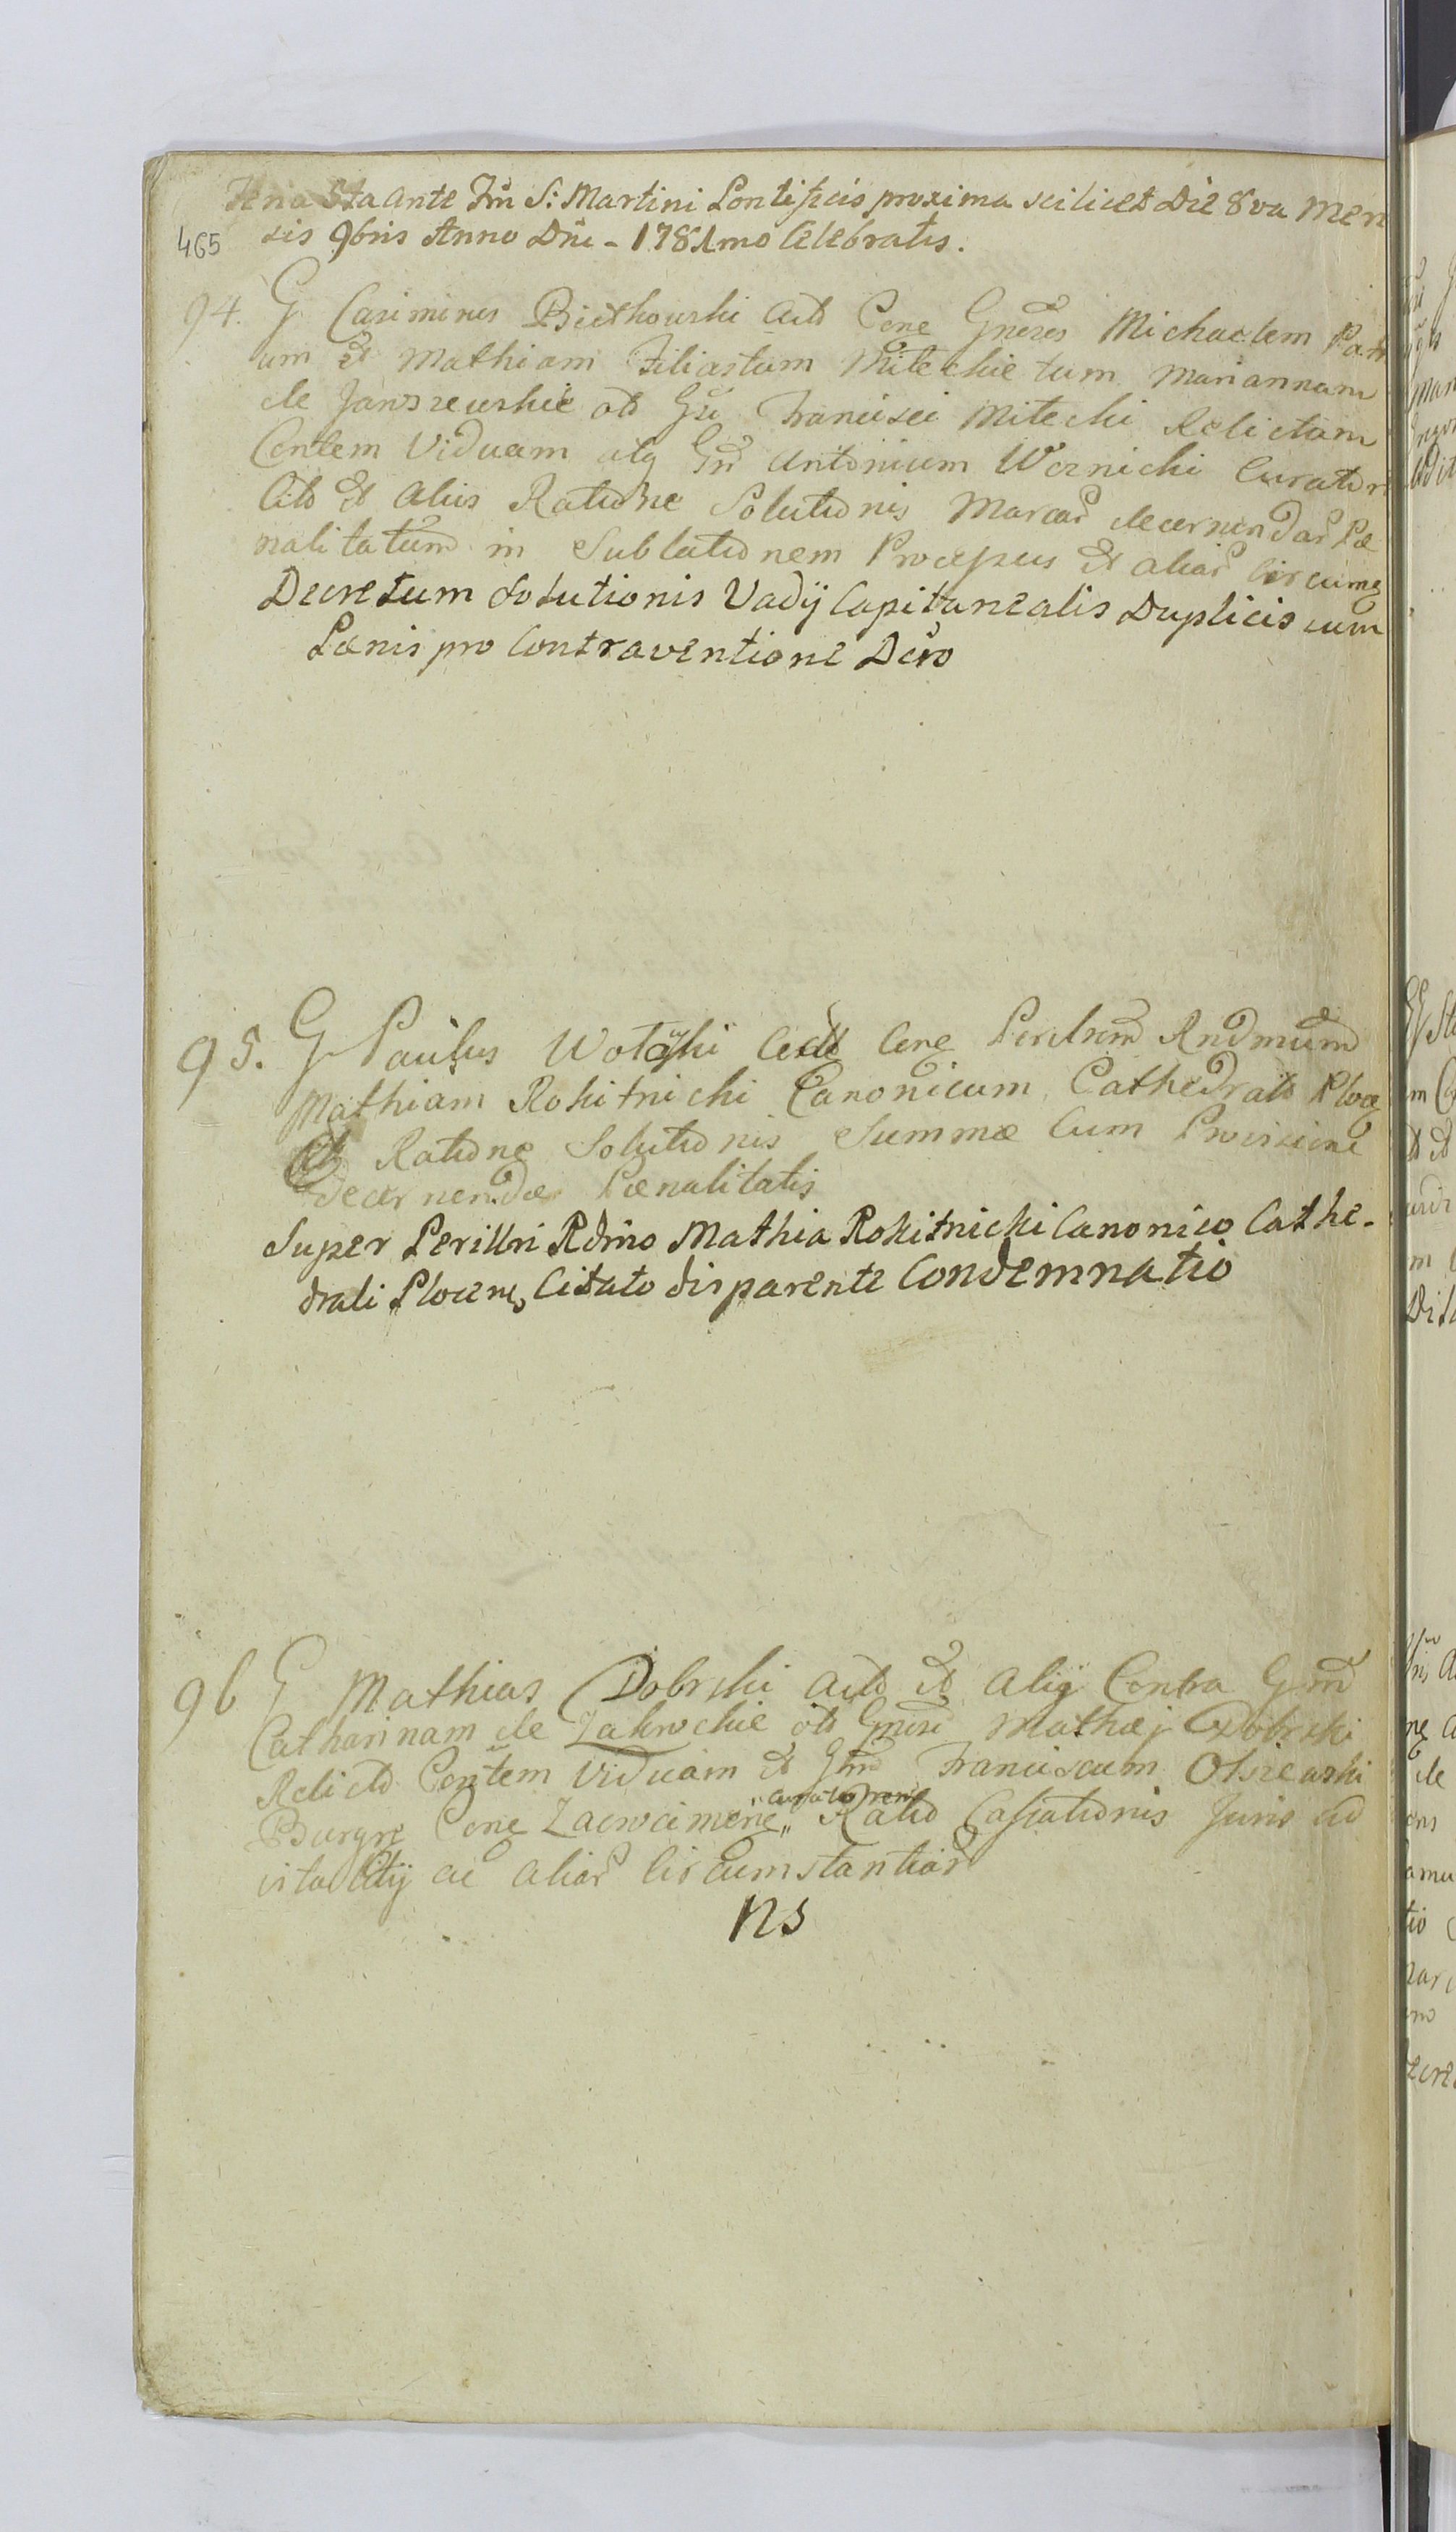 Feria 5ta ante Fm S: Martini Pontificis proxima scilicet Die 8va Men
sis 9bris Anno Dni - 1781mo Celebratis.
465
94. G Casimirus Bietkowski Act Cone Gneros Michaelem Patr
um et Mathiam Filiastum Miteckie tum Mariannam
de Janiszewskie ol Gsi Francisci Mitecki Relictam
Contem Viduam atq Gnd Antonium Wernicki Curator
Cito et Aliis Ratione Solutionis Marcar decernendar Pæ
nalitatum in Sublationem Processus et aliar circumq
Decretum Solutionis Vadij Capitanealis Duplicis cum
Pænis pro Contraventione Dcro
95. G Paulus Cone Perillrem Rndmum
Mathiam Rokitnicki Canonicum Cathedral Ploce
Cit Ratione Solutionis Summæ Cum Provisione
decernendæ Pænalitatis
Super Perillri Rdmo Mathia Rokitnicki Canonico Cathe-
drali Plocens Citato disparente Condemnatio
96 G Mathias Dobrski Act et Alij Contra Gnd
Catharinam de Zakrockie ol Gnosi Mathæj Dobrski
Relict Contem Viduam et Gnd Franciscum Olszewski
Burgr Cone Zacrocimene „Curatorem„ Ratio Cassationis Juris ad
vitalitij ac aliar circumstantiar
ns